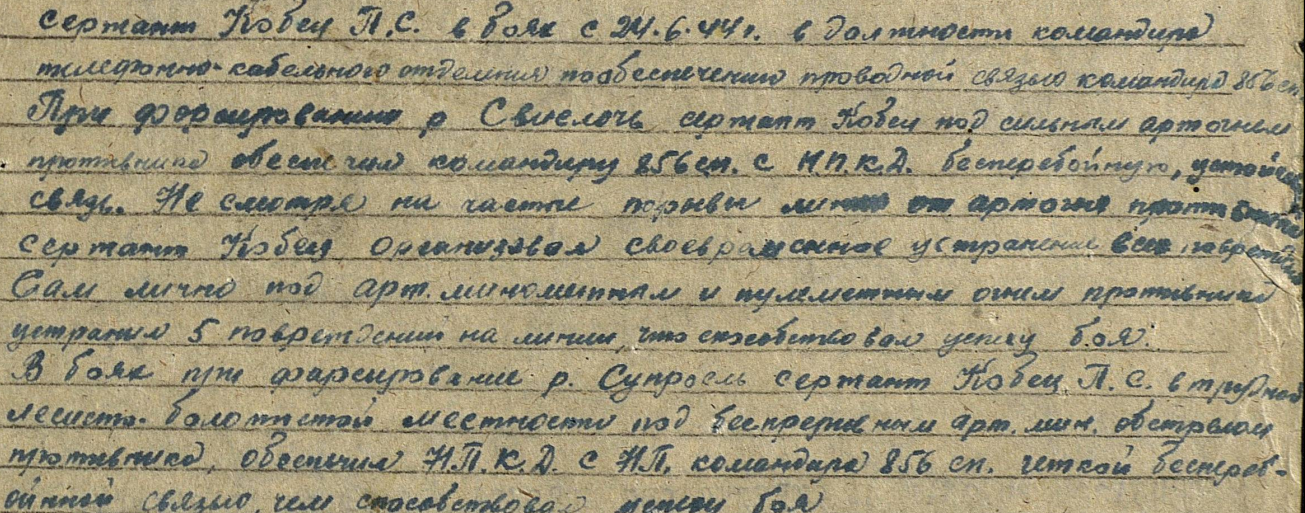 сержант Кобец П.С. в боях с 24.6.44 г. в должности командира
телефонно-кабельного отделения по обеспечению проводной связью командира 856 сп.
При форсировании р Свислочь сержант Кобец под сильным артогнем
противника обеспечил командиру 856 сп. с Н.П.К.Д. бесперебойную,
связь. Не смотря на частые порывы линии от артогня противника
сержант Кобец организовал своевременное устранение всех
Сам лично под арт. минометным и пулеметным огнем противника
устранил 5 повреждений на линии, что способствовал успеху боя.
В боях при форсирование р. Супросль сержант Кобец П.С. в трудной
лесисто-болотистой местности под беспрерывным арт. мин. обстрелом
противника, обеспечил Н.П.К.Д. с НП. командира 856 сп. четкой беспереб-
ойной связью, чем способствовал успеху боя